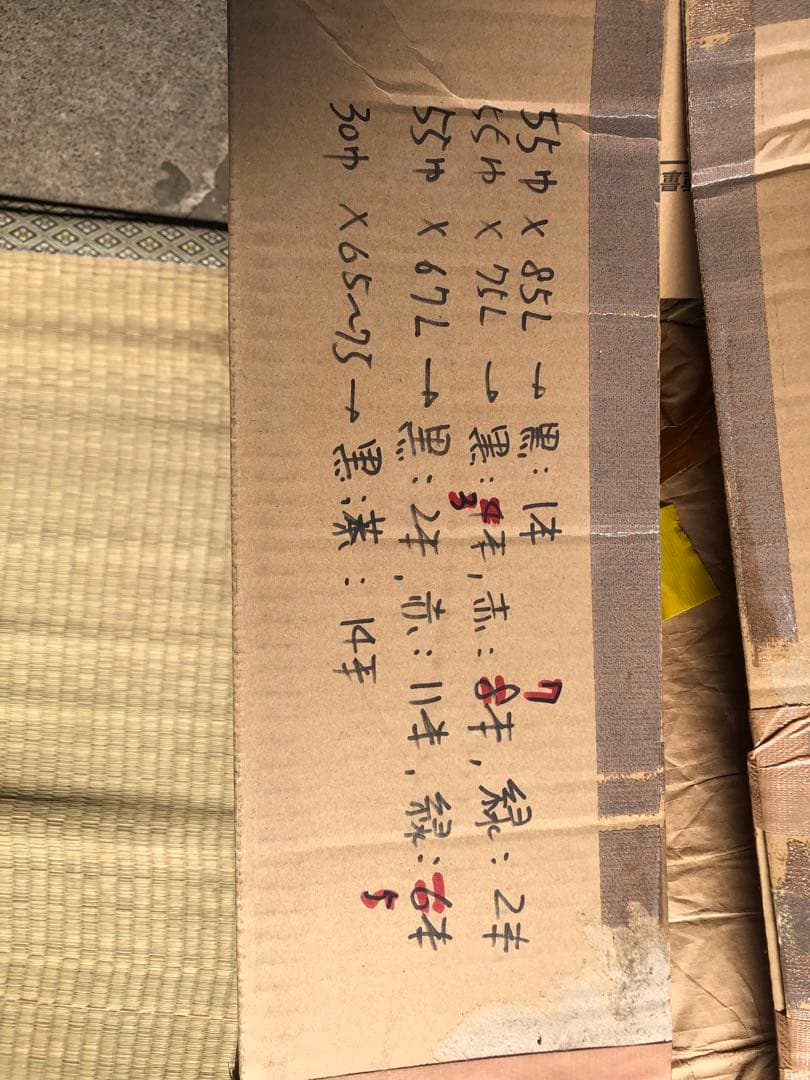 7
55巾 × 85L → 黒: 1本
55巾 × 75L → 黒: 4本, 赤: 8本, 緑: 2本
3
55巾 × 67L → 黒: 2本, 赤: 11本, 緑: 6本
5
30巾 × 65~75 → 黒:茶: 14本